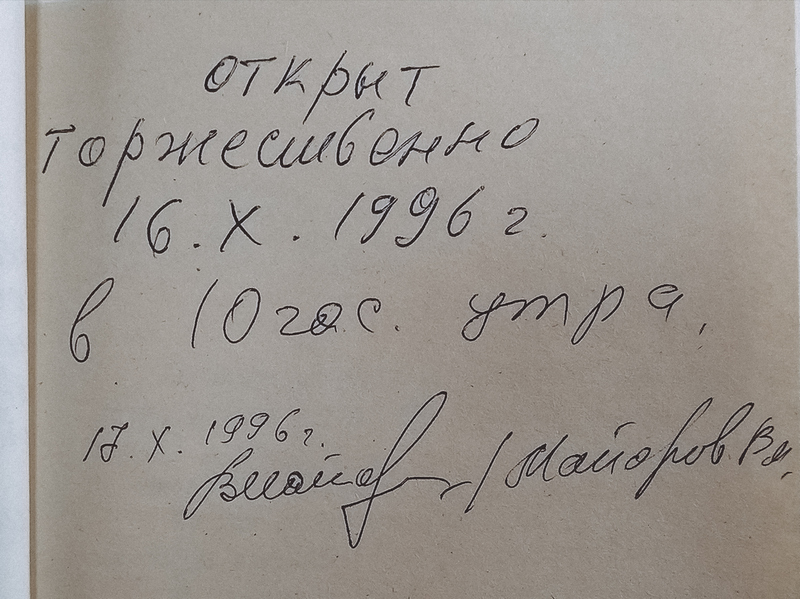 открыт
торжественно
16.X.1996 г.
в 10 час. утра.
17.X.1996 г.
/Майоров В